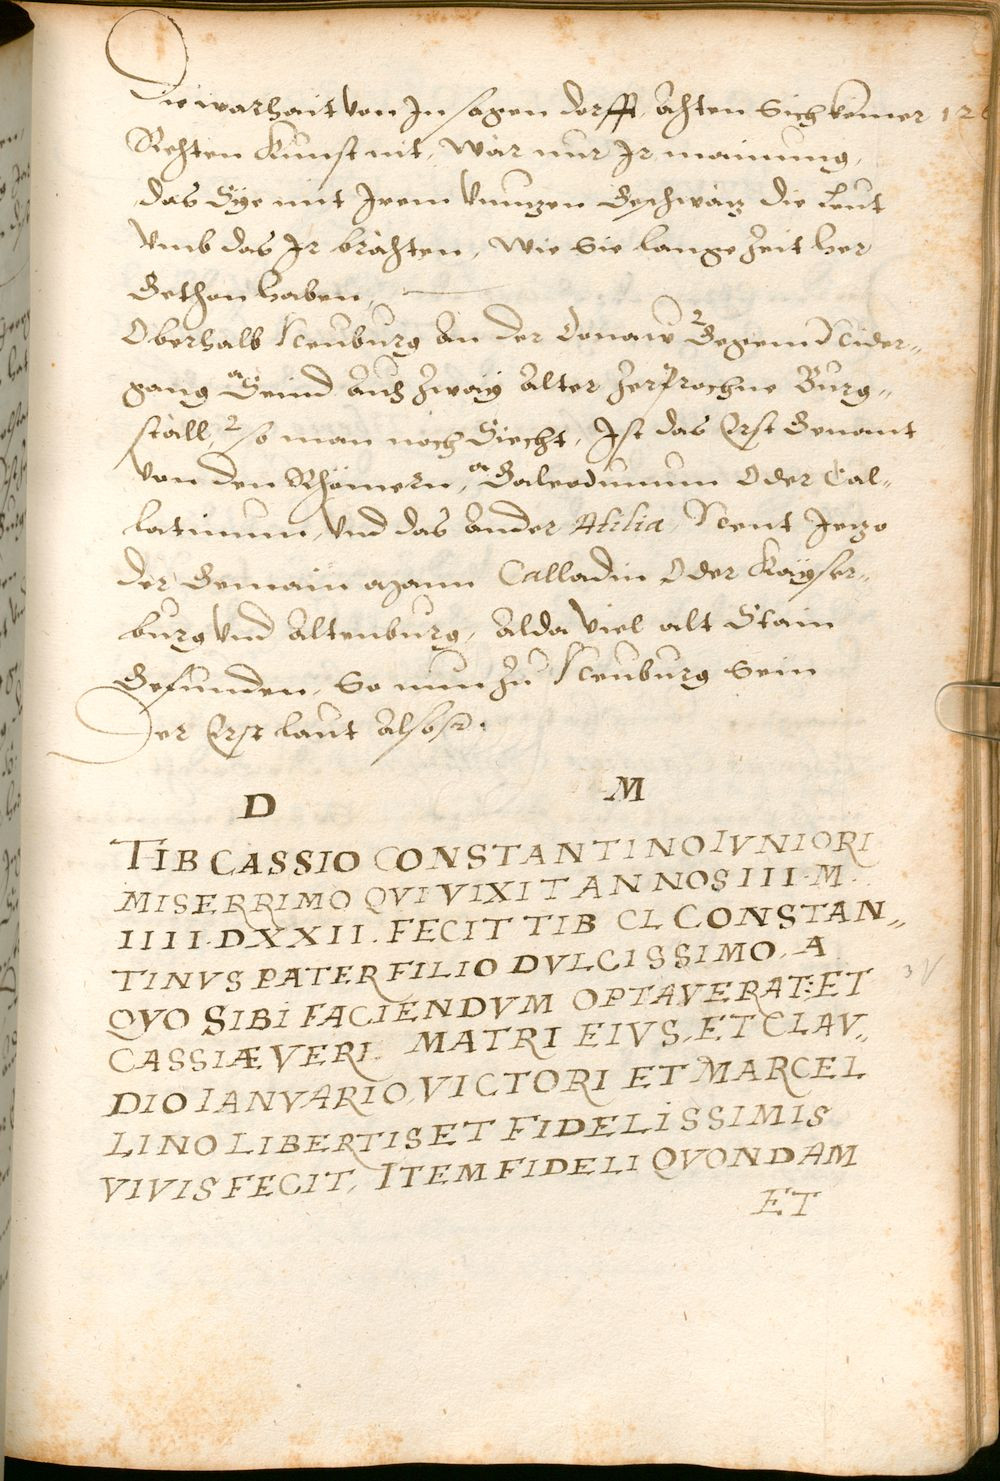 Die warhait von In sagen dorfft, achten sich keiner 126
Rechten kunst nit, war nur Ir mainung,
das Sye mit Irem Unnuzen Geschwäz die leut
Umb das Ir brächten, wie Sie lange Zeit her
Gethon haben,
Oberhalb Neuburg an der Donaw 2 Gegem Nider„
gang a Seind auch zway alter Zerprochne Burg„
ställ, 2 so man noch Siecht, Ist das Erst Genant
von den Rhömern, a Galeodunum Oder Cal„
latinum, Und das ander Atilia, Nent Iezo
der Gemain mann Calladin Oder Kayser„
burg Und Altenburg, alda viel alt Stain
Gefunden, So nun Zu Neuburg sein
Der Erst laut also:
D M
TIB CASSIO CONSTANTINO IVNIORI
MISERRIMO QVI VIXIT ANNOS III. M.
IIII. DXXII. FECIT TIB CL CONSTAN„
TINVS PATER FILIO DVLCISSIMO. A
QVO SIBI FACIENDVM OPTAVERAT: ET
CASSIÆ VERI. MATRI EIVS, ET CLAV„
DIO IANVARIO, VICTORI ET MARCEL
LINO LIBERTIS ET FIDELISSIMIS
VIVIS FECIT, ITEM FIDELI QVONDAM
ET